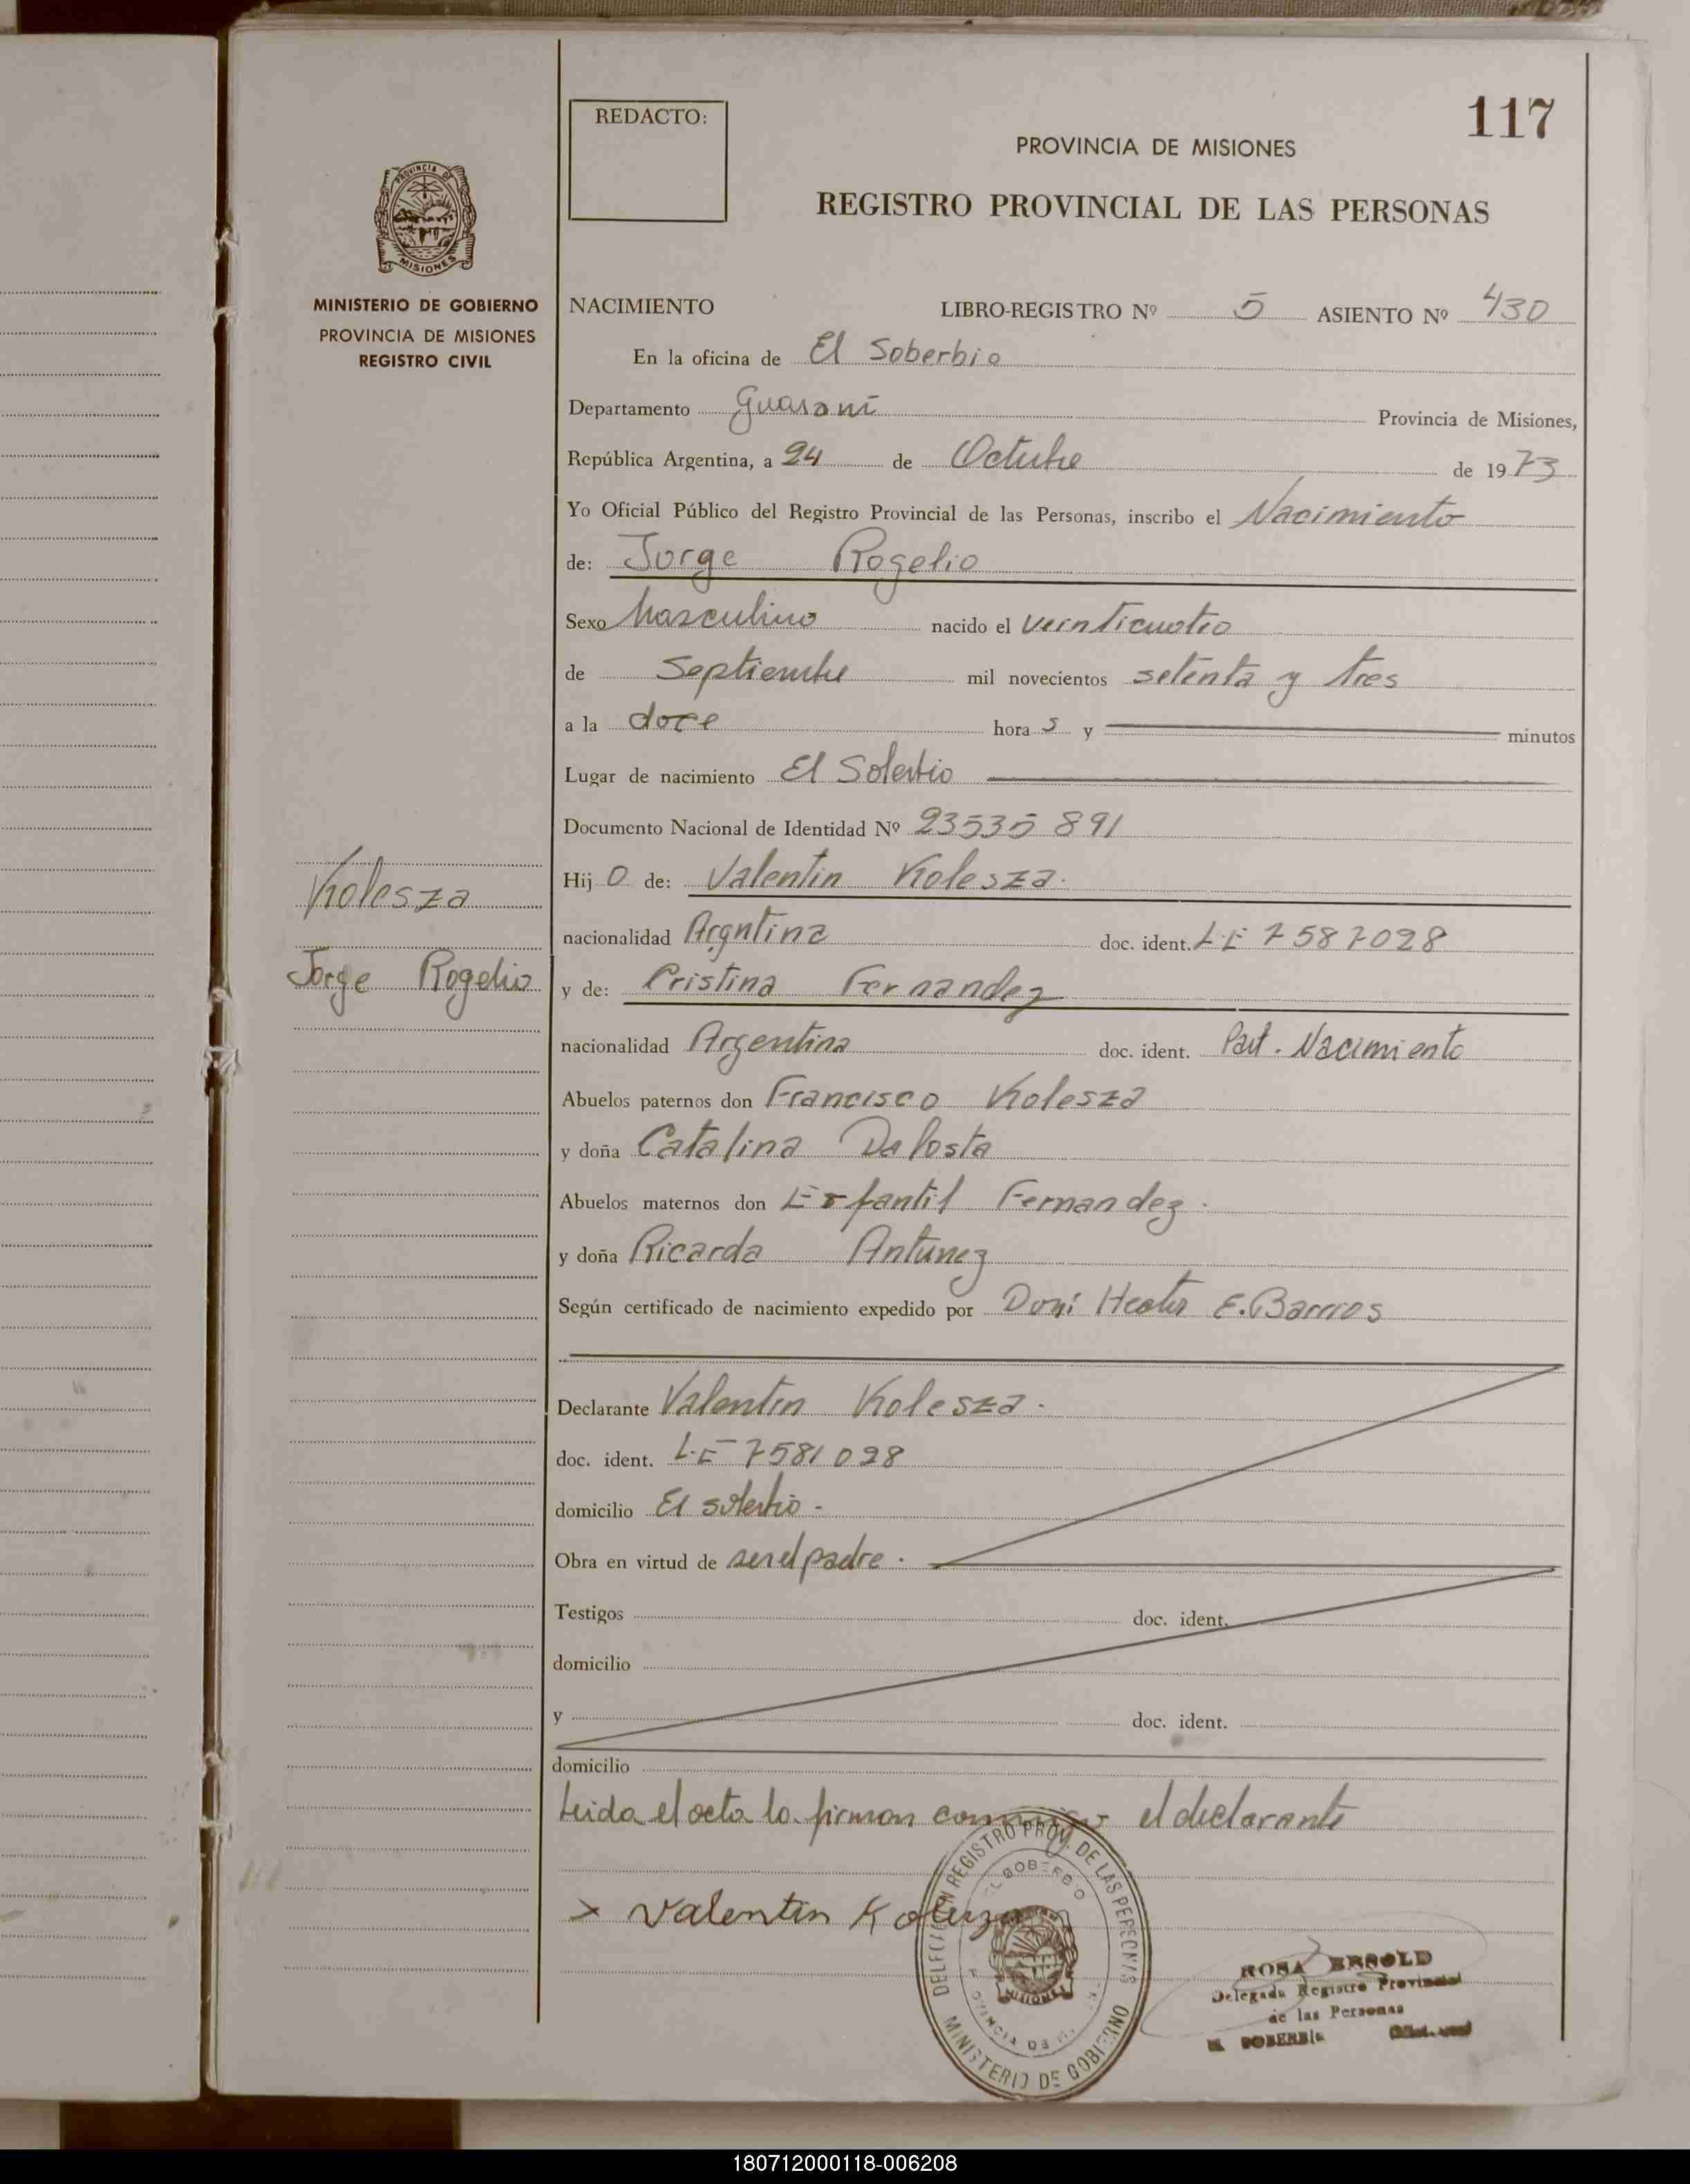 117
REDACTO:
PROVINCIA DE MISIONES
REGISTRO PROVINCIAL DE LAS PERSONAS
PROVINCIA DE
MISIONES
MINISTERIO DE GOBIERNO
PROVINCIA DE MISIONES
REGISTRO CIVIL
NACIMIENTO LIBRO-REGISTRO Nº 5 ASIENTO Nº 430
En la oficina de El Soberbio
Departamento Guaraní Provincia de Misiones,
República Argentina, a 24 de Octubre de 1973
Yo Oficial Público del Registro Provincial de las Personas, inscribo el Nacimiento
de: Jorge Rogelio
Sexo Masculino nacido el veinticuatro
de Septiembre mil novecientos setenta y tres
a la doce hora s y minutos
Lugar de nacimiento El Soberbio
Documento Nacional de Identidad Nº 23535891
Hij o de: Valentin Kolesza.
nacionalidad Argntina doc. ident. L.E 7587028
y de: Cristina Fernandez
nacionalidad Argentina doc. ident. Part. Nacimiento
Abuelos paternos don Francisco Kolesza
y doña Catalina Da Costa
Abuelos maternos don Fernandez.
y doña Ricarda Antunez
Según certificado de nacimiento expedido por Hector E. Barrios
Kolesza
Jorge Rogelio
Declarante Valentin Kolesza.
doc. ident. L.E 7581028
domicilio El Soberbio -
Obra en virtud de ser el padre.
Testigos doc. ident.
domicilio
y doc. ident.
domicilio
Leida el acta la firman conmigo el declarante
x Valentin Kolesza
DELEGACION REGISTRO PROV. DE LAS PERSONAS
EL SOBERBIO
MISIONES
PROVINCIA DE
MINISTERIO DE GOBIERNO
ROSA
Delegada Registro Provincial
de las Personas
EL SOBERBIO
180712000118-006208